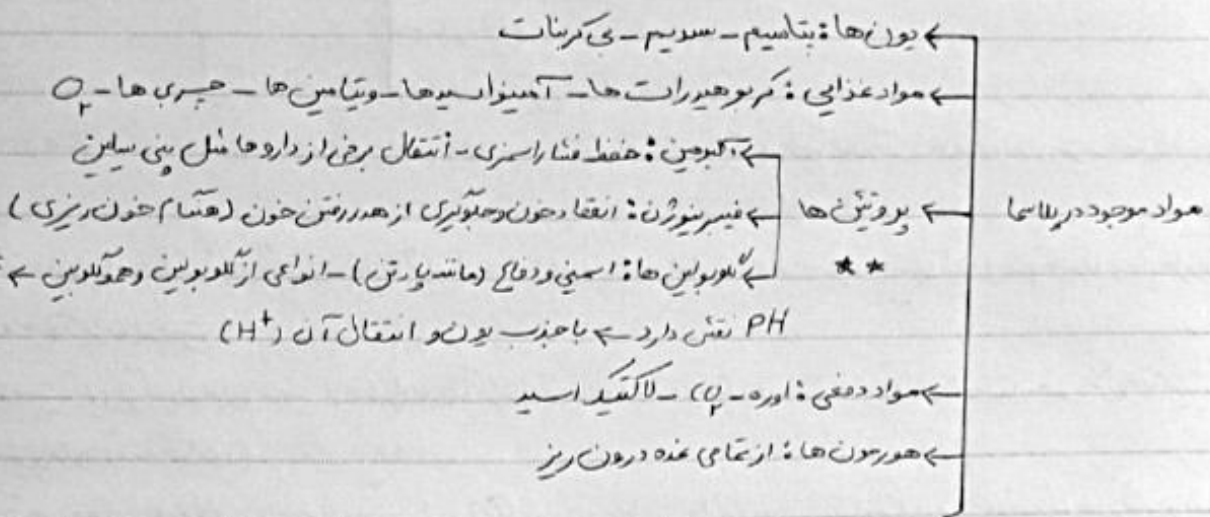 مواد موجود در پلاسما
← یون‌ها: پتاسیم - سدیم - بی کربنات
← مواد غذایی: کربوهیدرات ها - آمینواسیدها - ویتامین ها - چربی ها - O₂
← پروتئین ها
**
← آلبومین: حفظ فشار اسمزی - انتقال برخی از داروها مثل پنی سیلین
← فیبرینوژن: انعقاد خون و جلوگیری از هدر رفتن خون (هنگام خون ریزی)
← گلوبولین ها: ایمنی و دفاع (مانند پارتن) - انواعی از گلوبولین و هموگلوبین ←
PH نقش دارد ← با جذب یون و انتقال آن (H⁺)
← مواد دفعی: اوره - CO₂ - لاکتیک اسید
← هورمون ها: از تمامی غده درون ریز